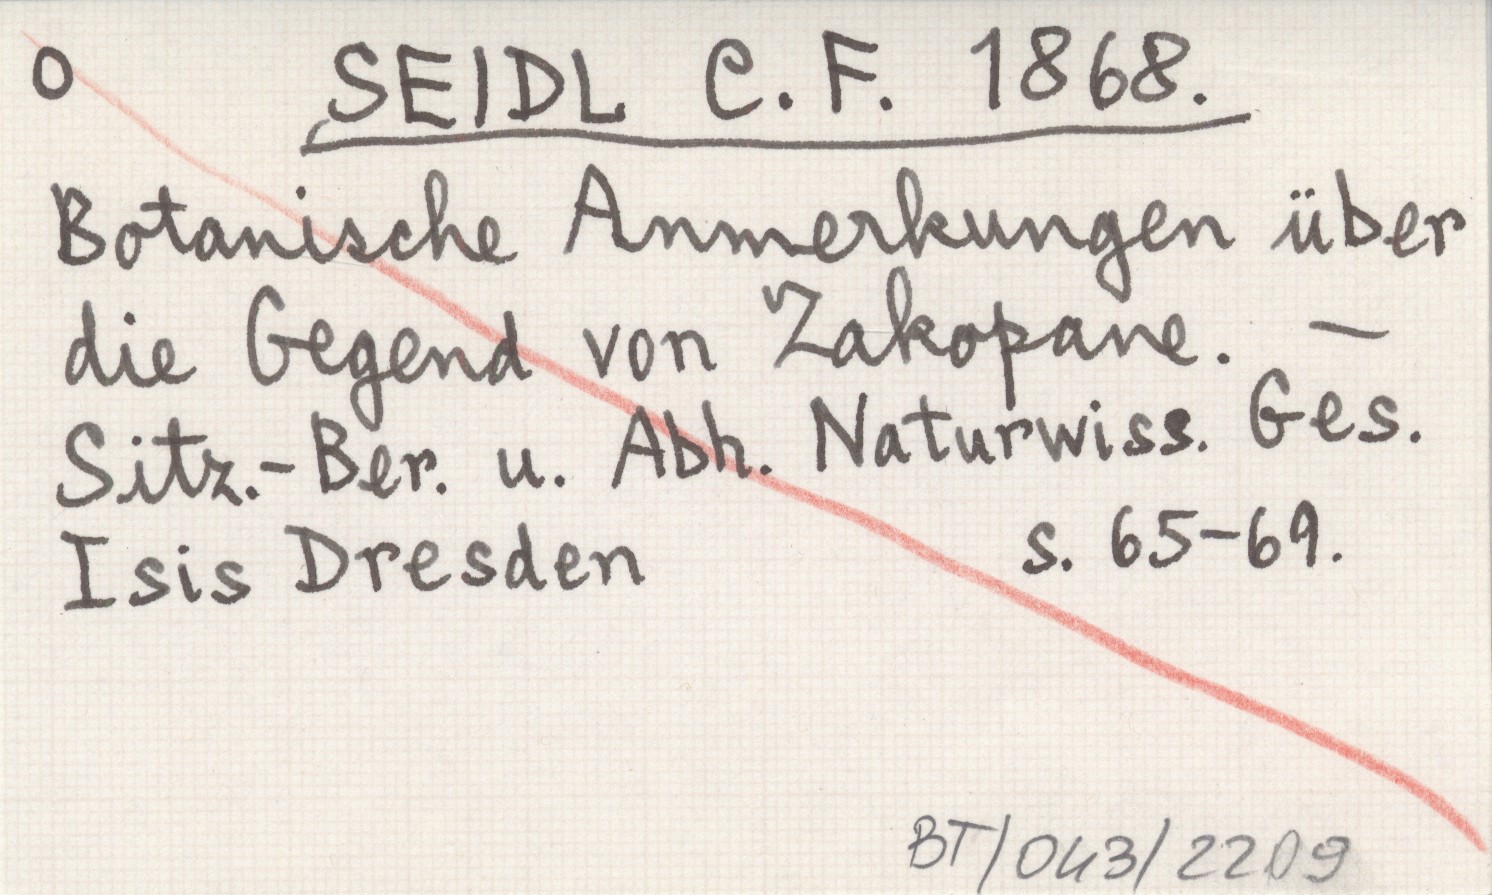 O SEIDL C. F. 1868.
Botanische Anmerkungen über
die Gegend von Zakopane. —
Sitz.-Ber. u. Abh. Naturwiss. Ges.
Isis Dresden s. 65-69.
BT/043/2209